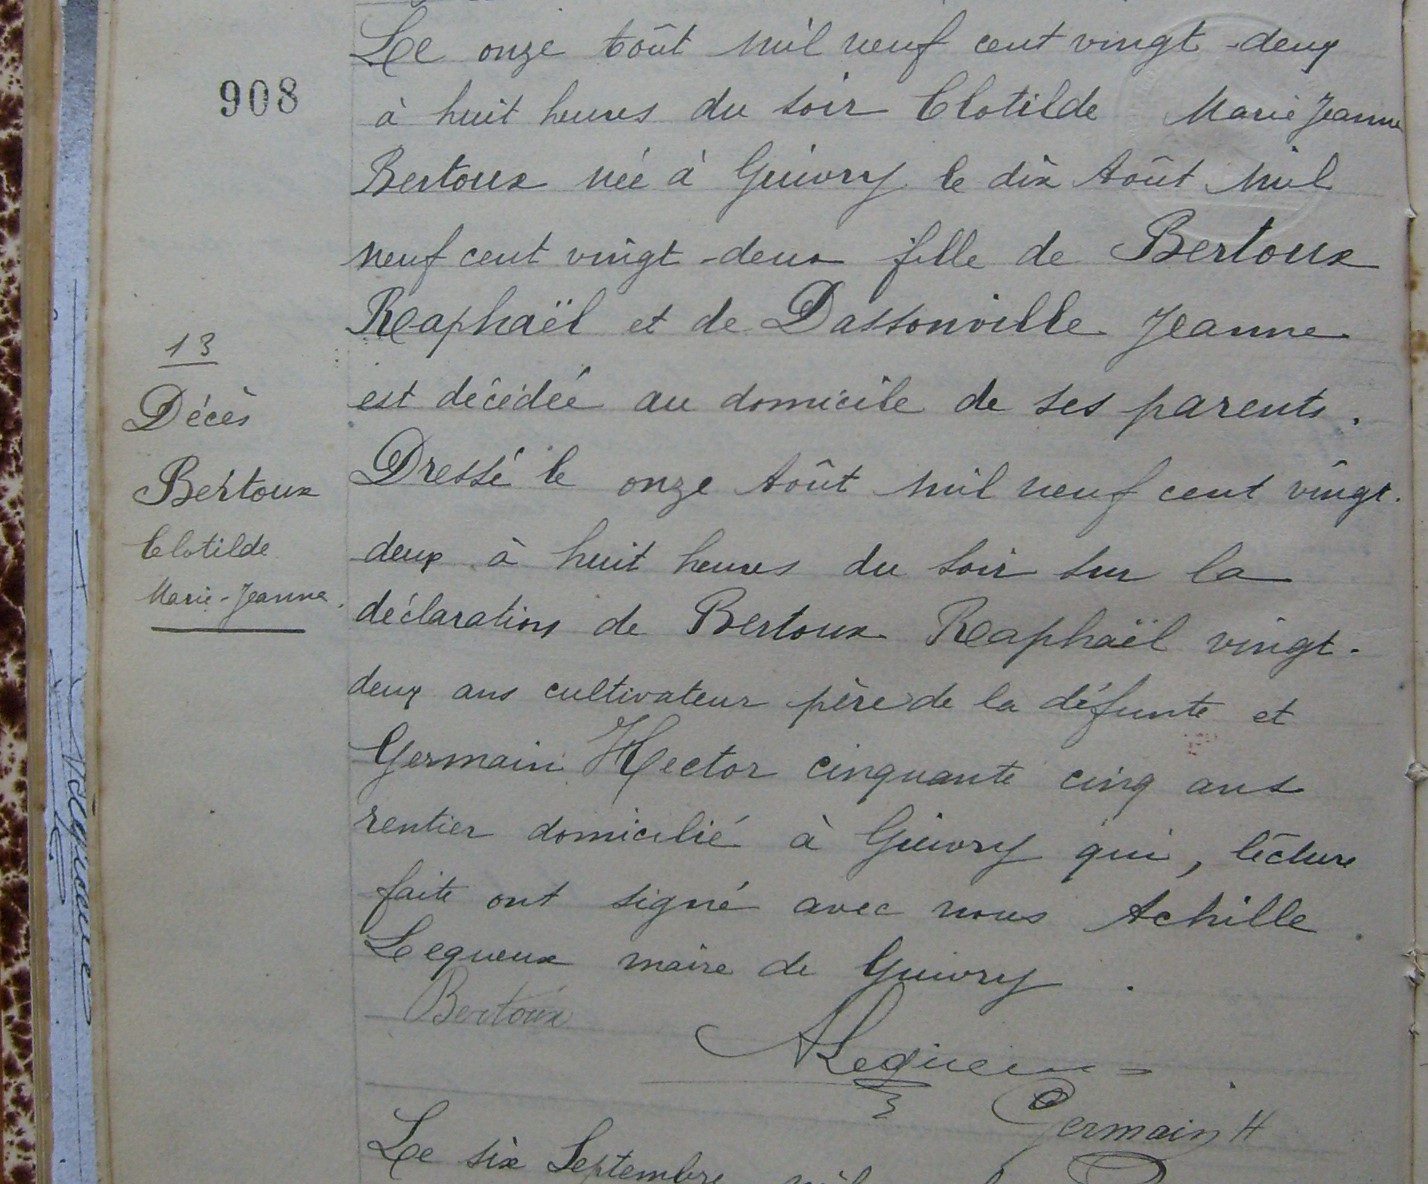 908
13
Décès
Bertoux
Clotilde
Marie-Jeanne.
Le onze Août mil neuf cent vingt-deux
à huit heures du soir Clotilde Marie Jeanne
Bertoux née à Guivry le dix Août mil
neuf cent vingt-deux fille de Bertoux
Raphaël et de Dassonville Jeanne
est décédée au domicile de ses parents.
Dressé le onze Août mil neuf cent vingt-
deux à huit heures du soir sur la
déclaration de Bertoux Raphaël vingt-
deux ans cultivateur père de la défunte et
Germain Hector cinquante cinq ans
rentier domicilié à Guivry qui, lecture
faite ont signé avec nous Achille
Lequeux maire de Guivry.
Bertoux
ALequeux
Germain H
Le six Septembre mil